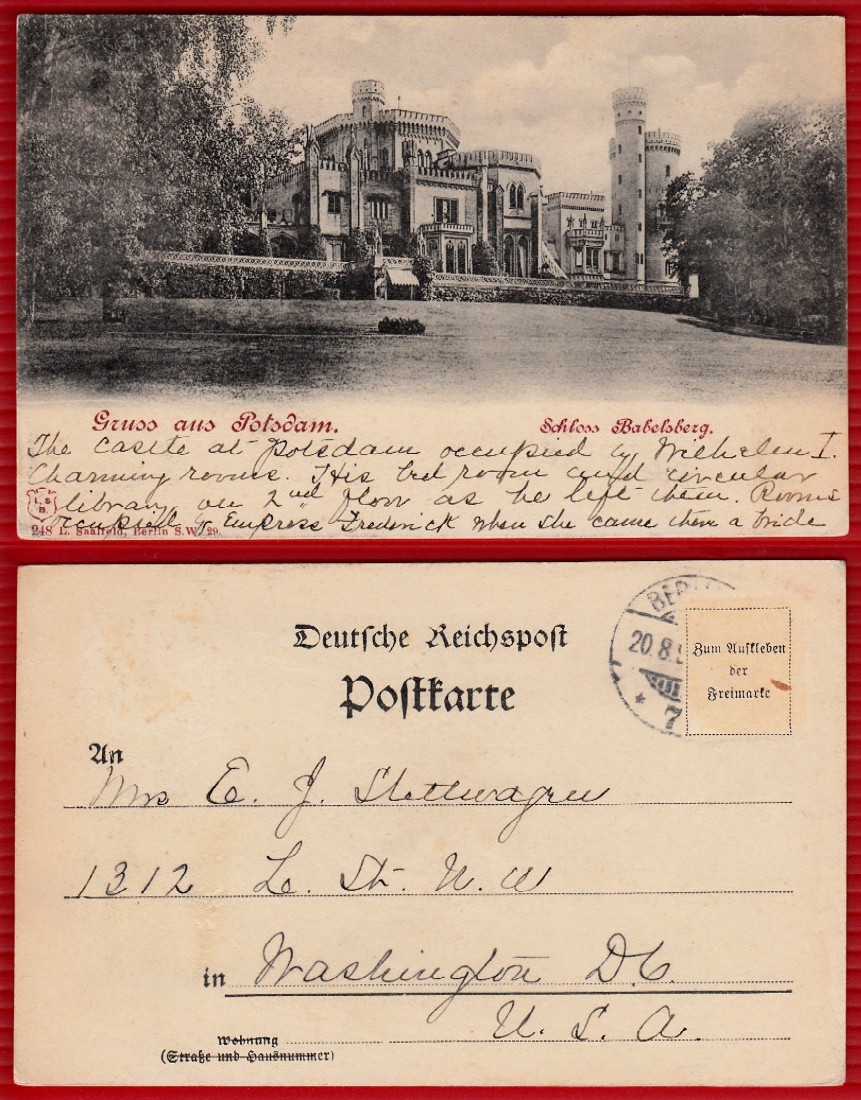 Gruss aus Potsdam.
Schloss Babelsberg.
The castle at Potsdam occupied by Wilhelm I.
Charming rooms. His bed room and circular
library on 2nd floor as he left them. Rooms
occupied by Empress Frederick when she came there a bride
L. S.
B.
248 L. Saalfeld, Berlin S.W. 29.
Deutsche Reichspost
Postkarte
BERL
20.8.
* 7
Zum Aufkleben
der
Freimarke
An
Mrs E. J. Stellwagen
1312 L. St. N. W
in Washington D.C.
U. S. A.
Wohnung
(Straße und Hausnummer)